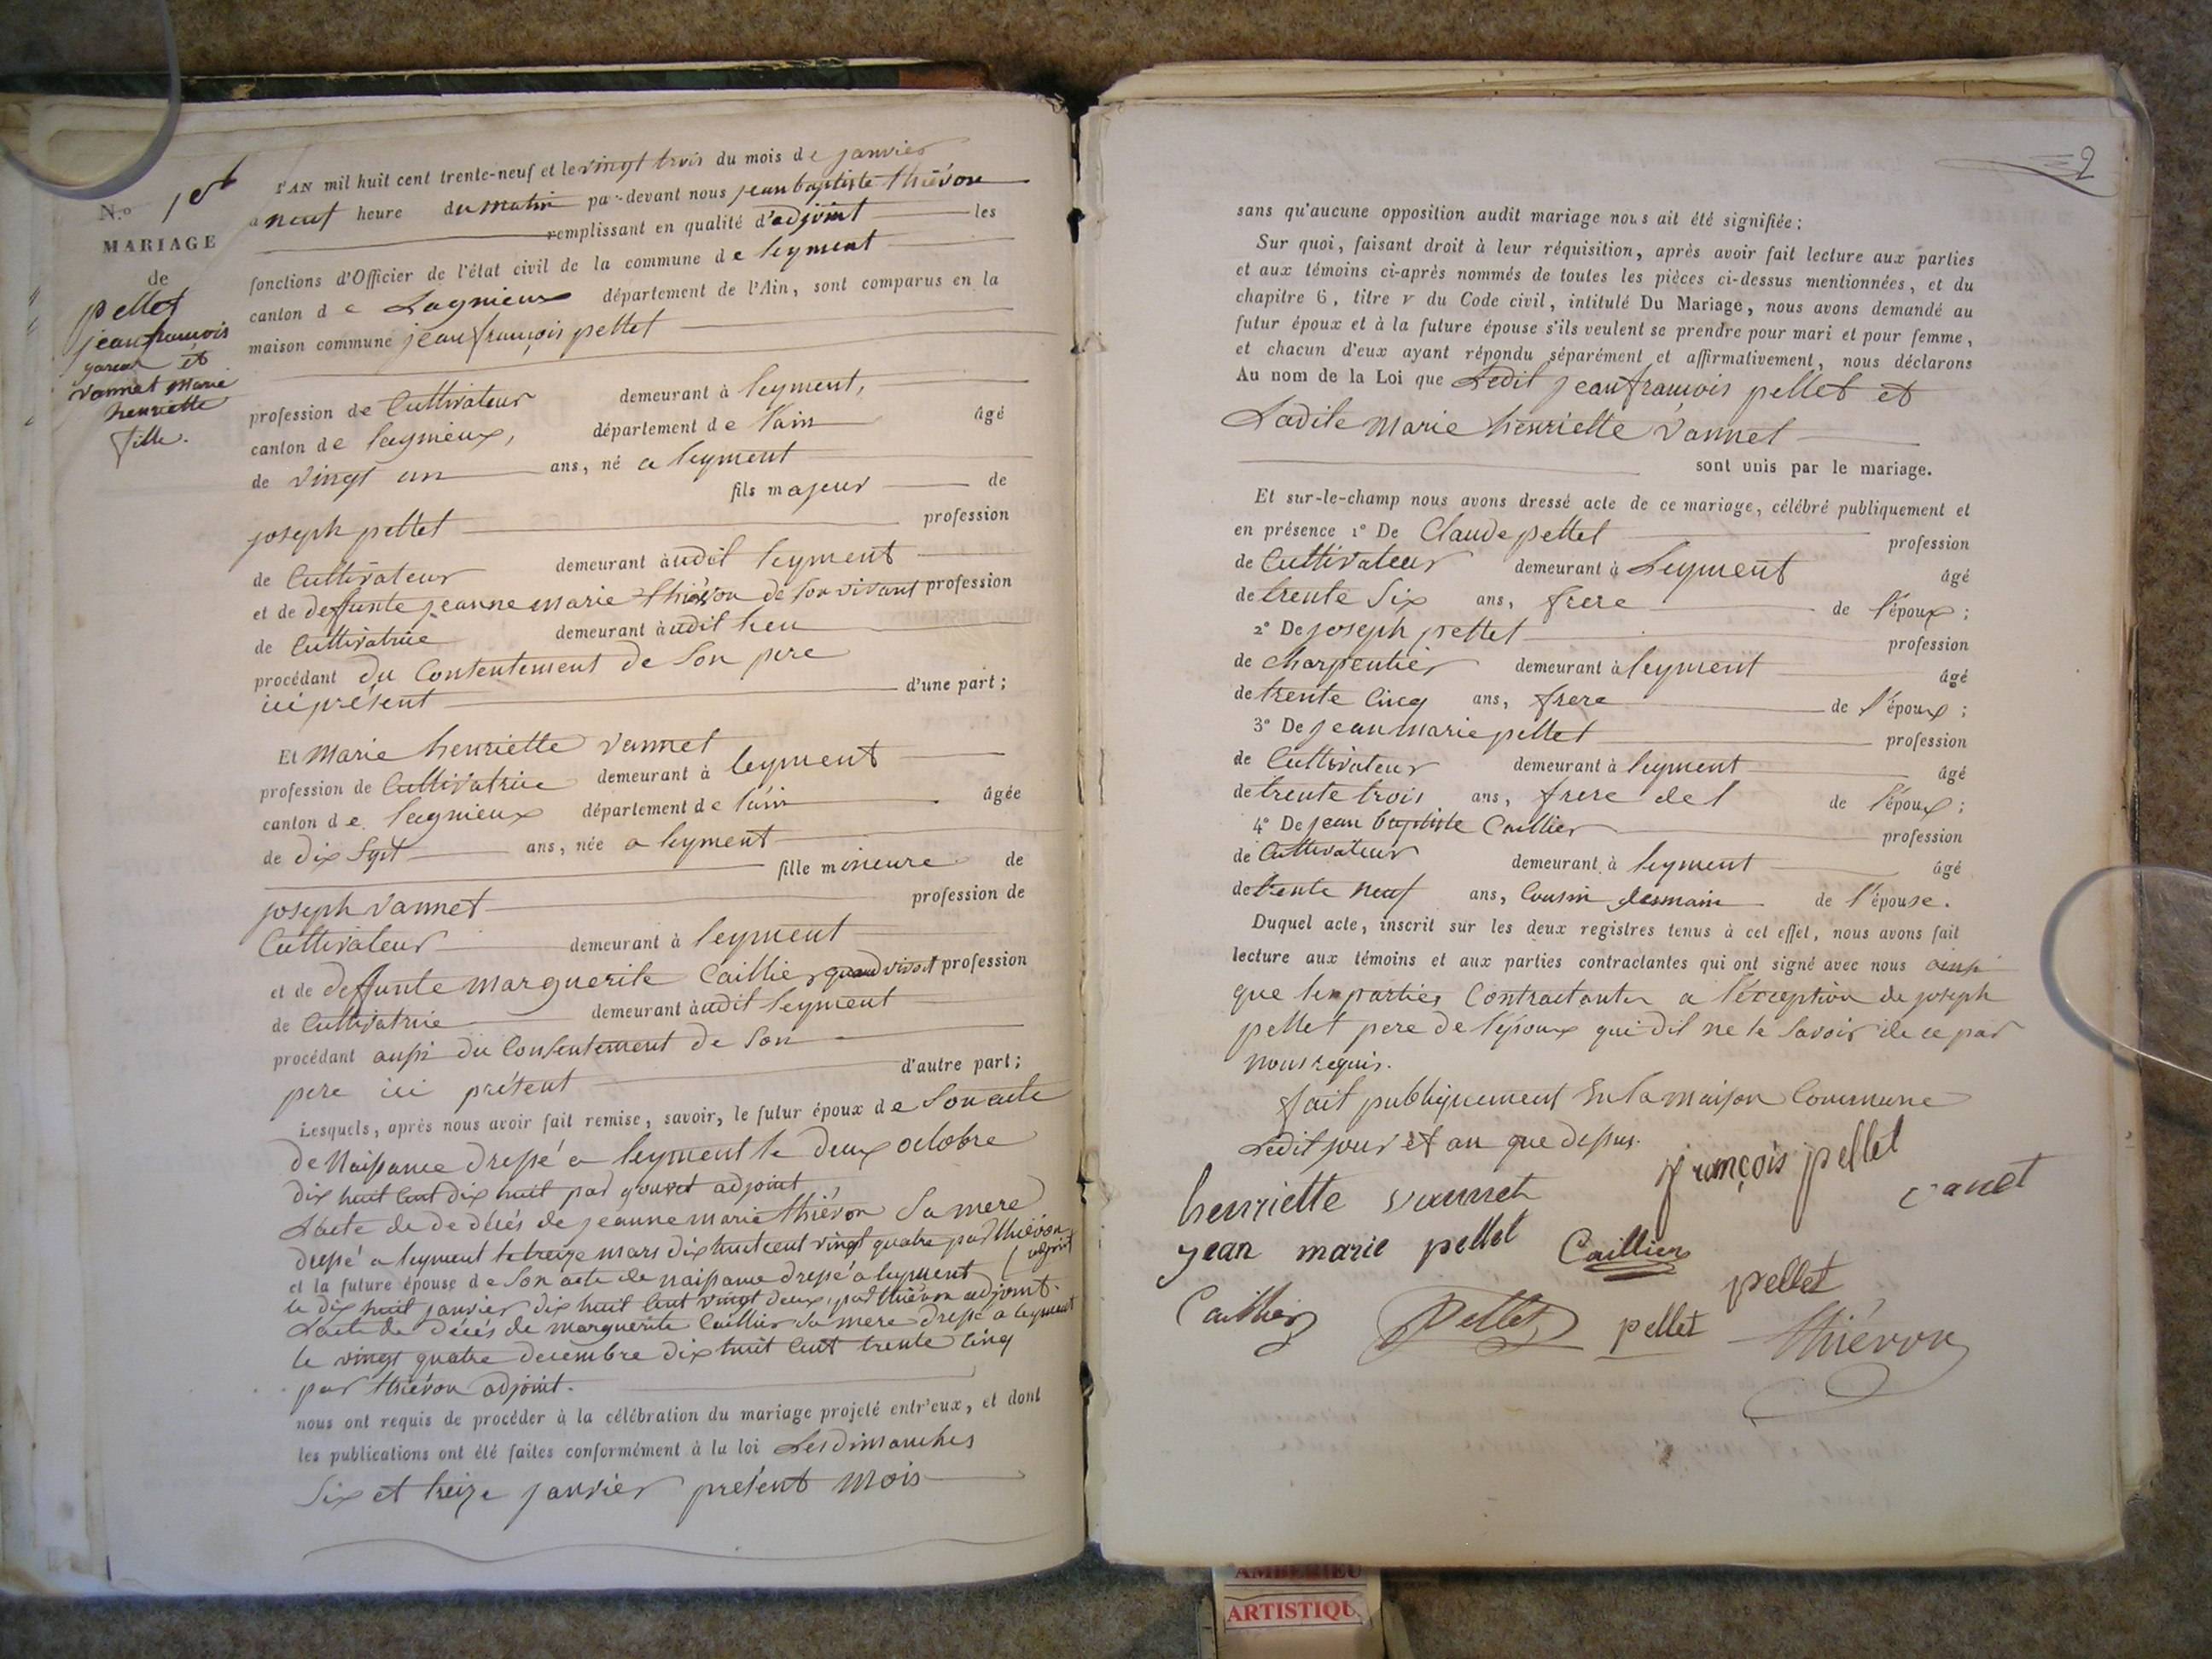 N.o 1er
MARIAGE
de
pellet
jean françois
garcon et
vannet marie
henriette
fille.
L'AN mil huit cent trente-neuf et le vingt trois du mois de janvier
a neuf heure du matin par-devant nous jean baptiste thiévon
remplissant en qualité d'adjoint les
fonctions d'Officier de l'état civil de la commune de leyment
canton de Lagnieux département de l'Ain, sont comparus en la
maison commune jean françois pellet
profession de Cultivateur demeurant à leyment,
canton de lagnieux, département de l'ain âgé
de vingt un ans, né a leyment
fils majeur de
joseph pellet profession
de Cultivateur demeurant audit leyment
et de deffunte jeanne marie thiévon de son vivant profession
de Cultivatrice demeurant audit lieu
procédant du Consentement de son pere
ici présent d'une part;
Et Marie henriette vannet
profession de Cultivatrice demeurant à leyment
canton de lagnieux département de l'ain âgée
de dix sept ans, née a leyment
fille mineure de
joseph vannet profession de
Cultivateur demeurant à leyment
et de deffunte marguerite Caillier quand vivait profession
de Cultivatrice demeurant audit leyment
procédant aussi du Consentement de son
pere ici présent d'autre part;
Lesquels, après nous avoir fait remise, savoir, le futur époux de son acte
de Naissance dressé a leyment le deux octobre
dix huit cent dix huit par adjoint
L'acte de de décés de jeanne marie thiévon sa mere
dressé a leyment le treize mars dix huit cent vingt quatre par thiévon
adjoint
et la future épouse de son acte de naissance dressé a leyment
le dix huit janvier dix huit cent vingt deux, par thiévon adjoint.
L'acte de décés de marguerite Caillier sa mere dressé a leyment
le vingt quatre decembre dix huit cent trente cinq
par thiévon adjoint.
nous ont requis de procéder à la célébration du mariage projeté entr'eux, et dont
les publications ont été faites conformément à la loi Les dimanches
six et treize janvier présent mois
2
sans qu'aucune opposition audit mariage nous ait été signifiée:
Sur quoi, faisant droit à leur réquisition, après avoir fait lecture aux parties
et aux témoins ci-après nommés de toutes les pièces ci-dessus mentionnées, et du
chapitre 6, titre v du Code civil, intitulé Du Mariage, nous avons demandé au
futur époux et à la future épouse s'ils veulent se prendre pour mari et pour femme,
et chacun d'eux ayant répondu séparément et affirmativement, nous déclarons
Au nom de la Loi que Ledit jean françois pellet et
Ladite Marie henriette Vannet
sont unis par le mariage.
Et sur-le-champ nous avons dressé acte de ce mariage, célébré publiquement et
en présence 1° De Claude pellet profession
de Cultivateur demeurant à Leyment âgé
de trente six ans, frere de l'époux;
2° De joseph pellet profession
de charpentier demeurant à leyment âgé
de trente cinq ans, frere de l'époux;
3° De jean marie pellet profession
de Cultivateur demeurant à leyment âgé
de trente trois ans, frere de l de l'époux;
4° De jean baptiste Caillier profession
de Cultivateur demeurant à leyment âgé
de trente neuf ans, Cousin Jermain de l'épouse.
Duquel acte, inscrit sur les deux registres tenus à cet effet, nous avons fait
lecture aux témoins et aux parties contractantes qui ont signé avec nous ainsi
que les parties Contractantes a l'éxception de joseph
pellet pere de l'époux qui dit ne le savoir de ce par
nous requis.
fait publiquement En la maison Commune
Ledit jour et an que dessus.
françois pellet
henriette vannet
vanet
jean marie pellet Caillier
pellet
Caillier Pellet pellet thiévon
AMBERIEU
ARTISTIQU